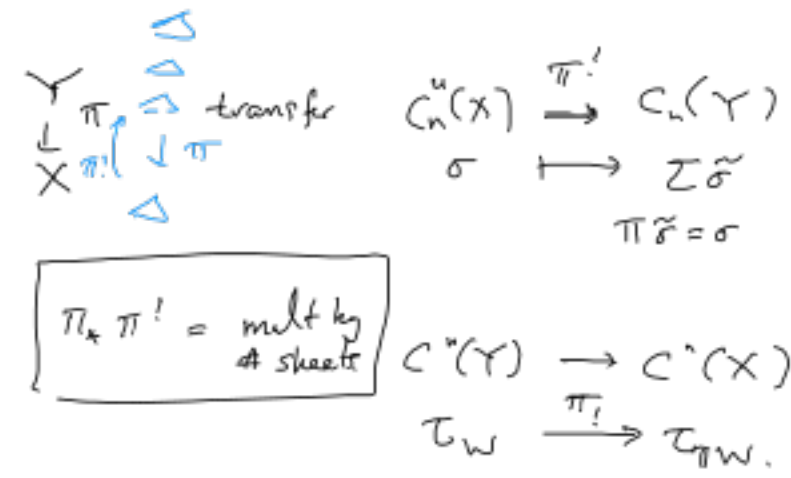 Y
π
↓
X
π!
↓ π
transfer
Cₙᵘ(X) →^{π!} Cₙ(Y)
σ ↦ Σσ̃
πσ̃ = σ
π⋆ π! = mult by
# sheets
Cⁿ(Y) → Cⁿ(X)
τ_W →^{π!} τ_{πW}.